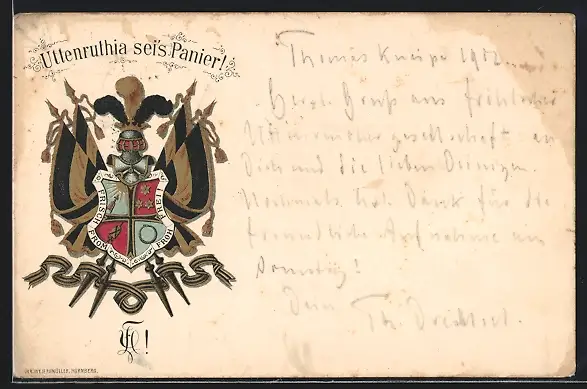 Uttenruthia sei's Panier!
FRISCH FREI
FROM FROH
Thomas Kneipe 1902
Herzl. Gruß aus fröhlicher
gesellschaft an
Dich und die lieben Deinigen.
Nochmals hzl. Dank für die
freundliche Aufnahme am
Sonntag!
Dein
Th. Drechsel.
NÜRNBERG.